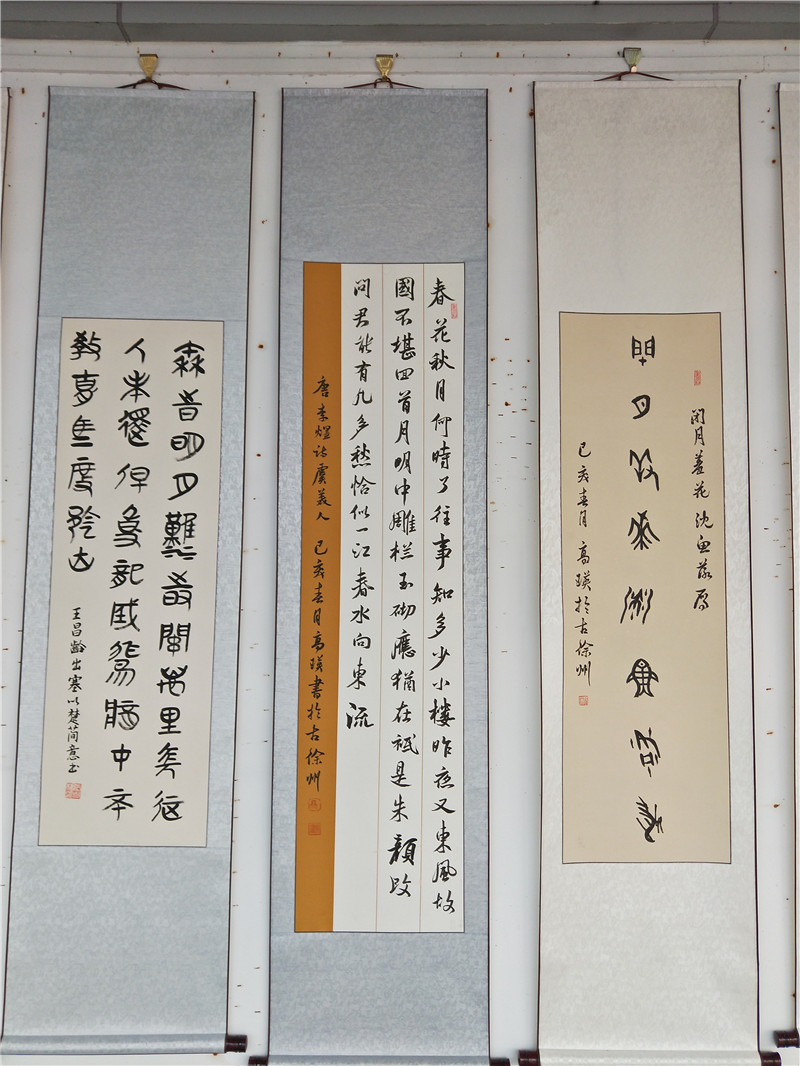 閉月羞花沈魚落雁
闭月羞花沈鱼落雁
己亥春月高瑛於古徐州
春花秋月何時了往事知多少小樓昨夜又東風故
國不堪回首月明中雕栏玉砌應猶在祗是朱顏改
問君能有几多愁恰似一江春水向東流
唐李煜诗虞美人 己亥春月高瑛書於古徐州
秦時明月漢時關萬里長征
人未還但使龍城飛將在不
教胡馬度陰山
王昌齡出塞以楚简意书